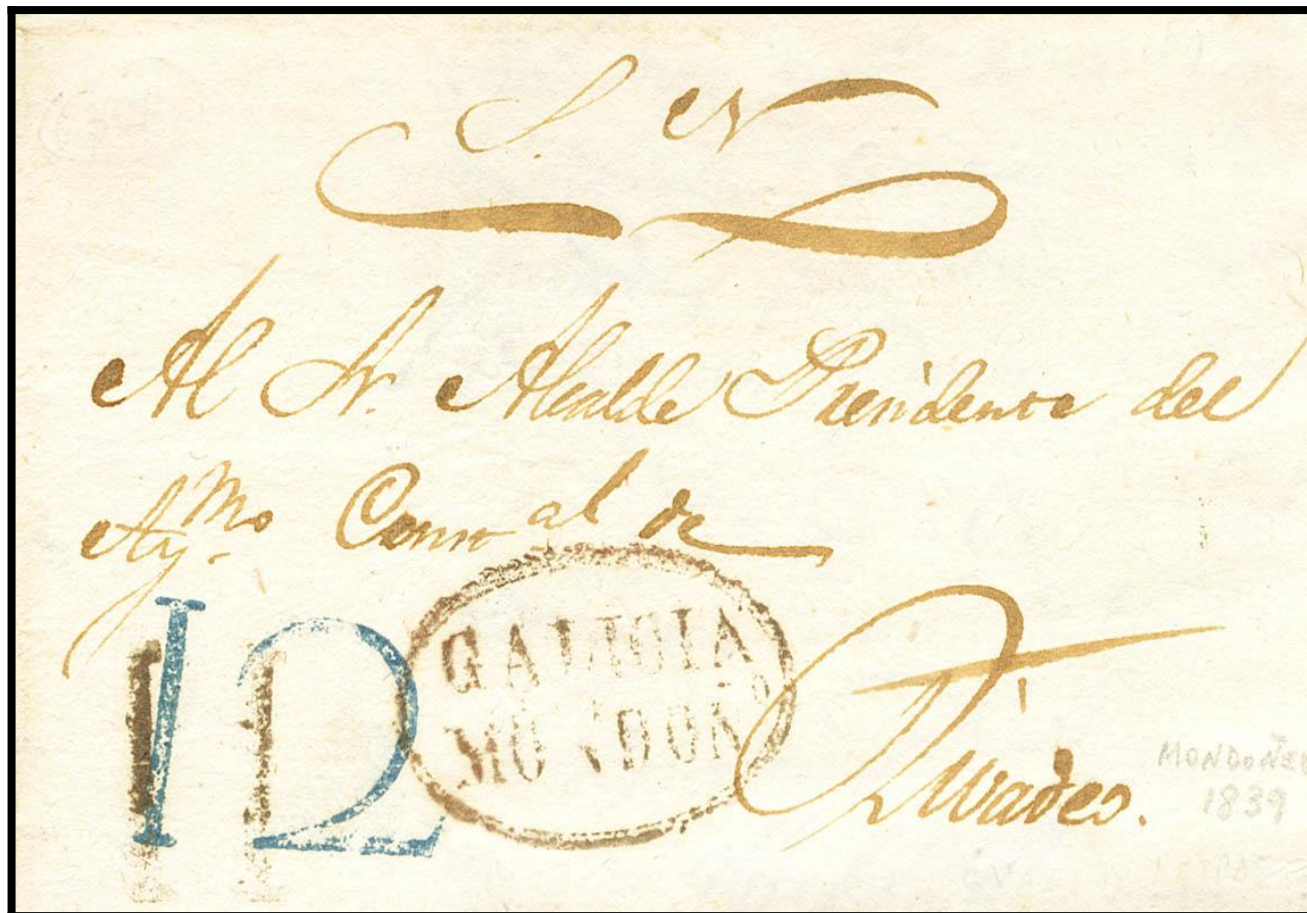 S. N
Al Sr. Alcalde Presidente del
Aymo. Conal de
12
GALICIA
MONDOÑO
Rivadeo.
MONDOÑE
1839